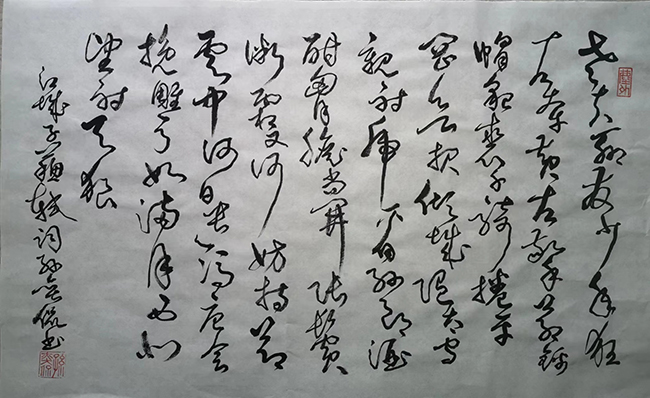 老夫聊發少年狂
左牽黃右擎蒼錦
帽貂裘千騎捲平
岡為報傾城隨太守
親射虎看孫郎酒
酣胸膽尚開張鬢
微霜又何妨持節
雲中何日遣馮唐會
挽雕弓如滿月西北
望射天狼
江城子蘇軾詞孫侃書